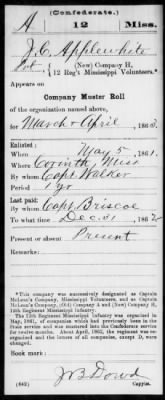 (Confederate.)
A 12 Miss.
J. C. Applewhite
Pvt. { (New) Company H,
12 Reg't Mississippi Volunteers.*
Appears on
Company Muster Roll
of the organization named above,
for March & April, 1862.
Enlisted:
When May 5, 1861.
Where Corinth, Miss
By whom Capt Walker
Period 1 yr
Last paid:
By whom Capt Briscoe
To what time Dec 31, 186
Present or absent Present
Remarks:
*This company was successively designated as Captain
McLean's Company, Mississippi Volunteers, and as Captain
McLean's Company, (Old) Company 4 and (New) Company H,
12th Regiment Mississippi Infantry.
The 12th Regiment Mississippi Infantry was organized in
May, 1861, of companies which had previously been in the
State service and mustered into the Confederate service
for twelve months. About April, 1862, the regiment was re-
organized and the letters of all companies, except D, were
changed.
Book mark:
J B Dowd
(642) Copyist.